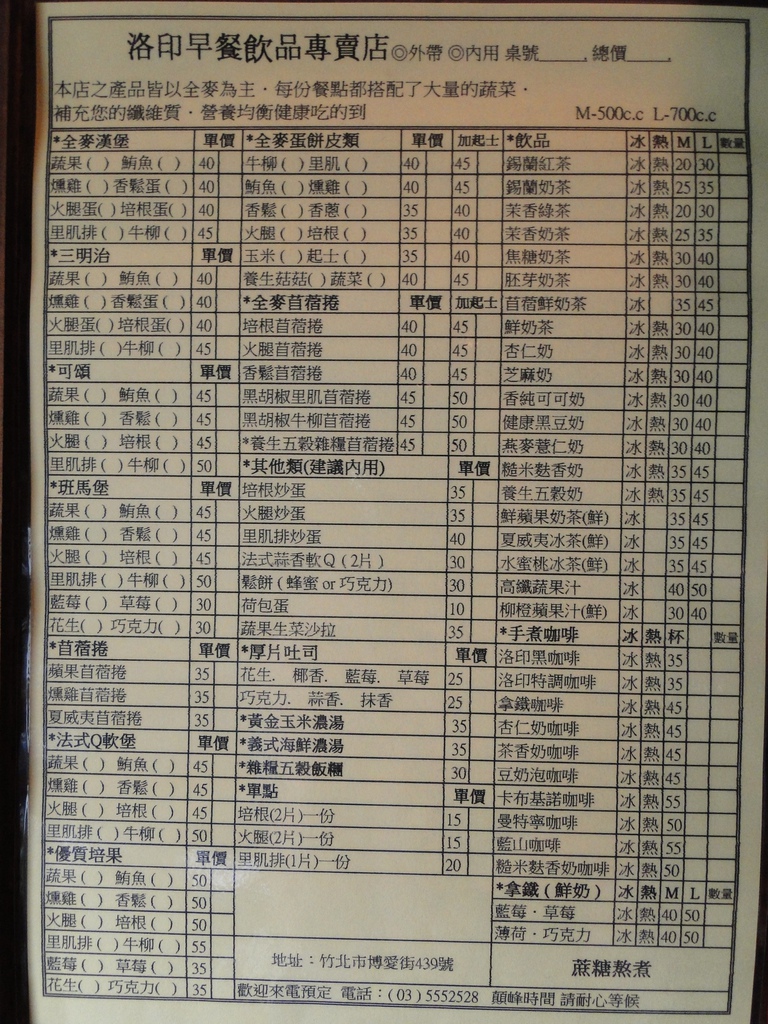 洛印早餐飲品專賣店 ◎外帶 ◎內用 桌號_____, 總價_____.
本店之產品皆以全麥為主．每份餐點都搭配了大量的蔬菜．
補充您的纖維質．營養均衡健康吃的到 M-500c.c L-700c.c
*全麥漢堡 單價
蔬果( ) 鮪魚( ) 40
燻雞( ) 香鬆蛋( ) 40
火腿蛋( ) 培根蛋( ) 40
里肌排( ) 牛柳( ) 45
*三明治 單價
蔬果( ) 鮪魚( ) 40
燻雞( ) 香鬆蛋( ) 40
火腿蛋( ) 培根蛋( ) 40
里肌排( ) 牛柳( ) 45
*可頌 單價
蔬果( ) 鮪魚( ) 45
燻雞( ) 香鬆( ) 45
火腿( ) 培根( ) 45
里肌排( ) 牛柳( ) 50
*班馬堡 單價
蔬果( ) 鮪魚( ) 45
燻雞( ) 香鬆( ) 45
火腿( ) 培根( ) 45
里肌排( ) 牛柳( ) 50
藍莓( ) 草莓( ) 30
花生( ) 巧克力( ) 30
*苜蓿捲 單價
蘋果苜蓿捲 35
燻雞苜蓿捲 35
夏威夷苜蓿捲 35
*法式Q軟堡 單價
蔬果( ) 鮪魚( ) 45
燻雞( ) 香鬆( ) 45
火腿( ) 培根( ) 45
里肌排( ) 牛柳( ) 50
*優質培果 單價
蔬果( ) 鮪魚( ) 50
燻雞( ) 香鬆( ) 50
火腿( ) 培根( ) 50
里肌排( ) 牛柳( ) 55
藍莓( ) 草莓( ) 35
花生( ) 巧克力( ) 35
*全麥蛋餅皮類 單價 加起士
牛柳( ) 里肌( ) 40 45
鮪魚( ) 燻雞( ) 40 45
香鬆( ) 香蔥( ) 35 40
火腿( ) 培根( ) 35 40
玉米( ) 起士( ) 35 40
養生菇菇( ) 蔬菜( ) 40 45
*全麥苜蓿捲 單價 加起士
培根苜蓿捲 40 45
火腿苜蓿捲 40 45
香鬆苜蓿捲 40 45
黑胡椒里肌苜蓿捲 45 50
黑胡椒牛柳苜蓿捲 45 50
*養生五穀雜糧苜蓿捲 45 50
*其他類(建議內用) 單價
培根炒蛋 35
火腿炒蛋 35
里肌排炒蛋 40
法式蒜香軟Q (2片) 30
鬆餅 (蜂蜜 or 巧克力) 30
荷包蛋 10
蔬果生菜沙拉 35
*厚片吐司 單價
花生. 椰香. 藍莓. 草莓 25
巧克力. 蒜香. 抹香 25
*黃金玉米濃湯 35
*義式海鮮濃湯 35
*雜糧五穀飯糰 30
*單點 單價
培根(2片)一份 15
火腿(2片)一份 15
里肌排(1片)一份 20
*飲品 冰 熱 M L 數量
錫蘭紅茶 冰 熱 20 30
錫蘭奶茶 冰 熱 25 35
茉香綠茶 冰 熱 20 30
茉香奶茶 冰 熱 25 35
焦糖奶茶 冰 熱 30 40
胚芽奶茶 冰 熱 30 40
苜蓿鮮奶茶 冰 35 45
鮮奶茶 冰 熱 30 40
杏仁奶 冰 熱 30 40
芝麻奶 冰 熱 30 40
香純可可奶 冰 熱 30 40
健康黑豆奶 冰 熱 30 40
燕麥薏仁奶 冰 熱 30 40
糙米麩香奶 冰 熱 35 45
養生五穀奶 冰 熱 35 45
鮮蘋果奶茶(鮮) 冰 35 45
夏威夷冰茶(鮮) 冰 35 45
水蜜桃冰茶(鮮) 冰 35 45
高纖蔬果汁 冰 40 50
柳橙蘋果汁(鮮) 冰 30 40
*手煮咖啡 冰 熱 杯 數量
洛印黑咖啡 冰 熱 35
洛印特調咖啡 冰 熱 35
拿鐵咖啡 冰 熱 45
杏仁奶咖啡 冰 熱 45
茶香奶咖啡 冰 熱 45
豆奶泡咖啡 冰 熱 45
卡布基諾咖啡 冰 熱 55
曼特寧咖啡 冰 熱 50
藍山咖啡 冰 熱 55
糙米麩香奶咖啡 冰 熱 50
*拿鐵(鮮奶) 冰 熱 M L 數量
藍莓．草莓 冰 熱 40 50
薄荷．巧克力 冰 熱 40 50
地址：竹北市博愛街439號
蔗糖熬煮
歡迎來電預定 電話：(03) 5552528 顛峰時間 請耐心等候